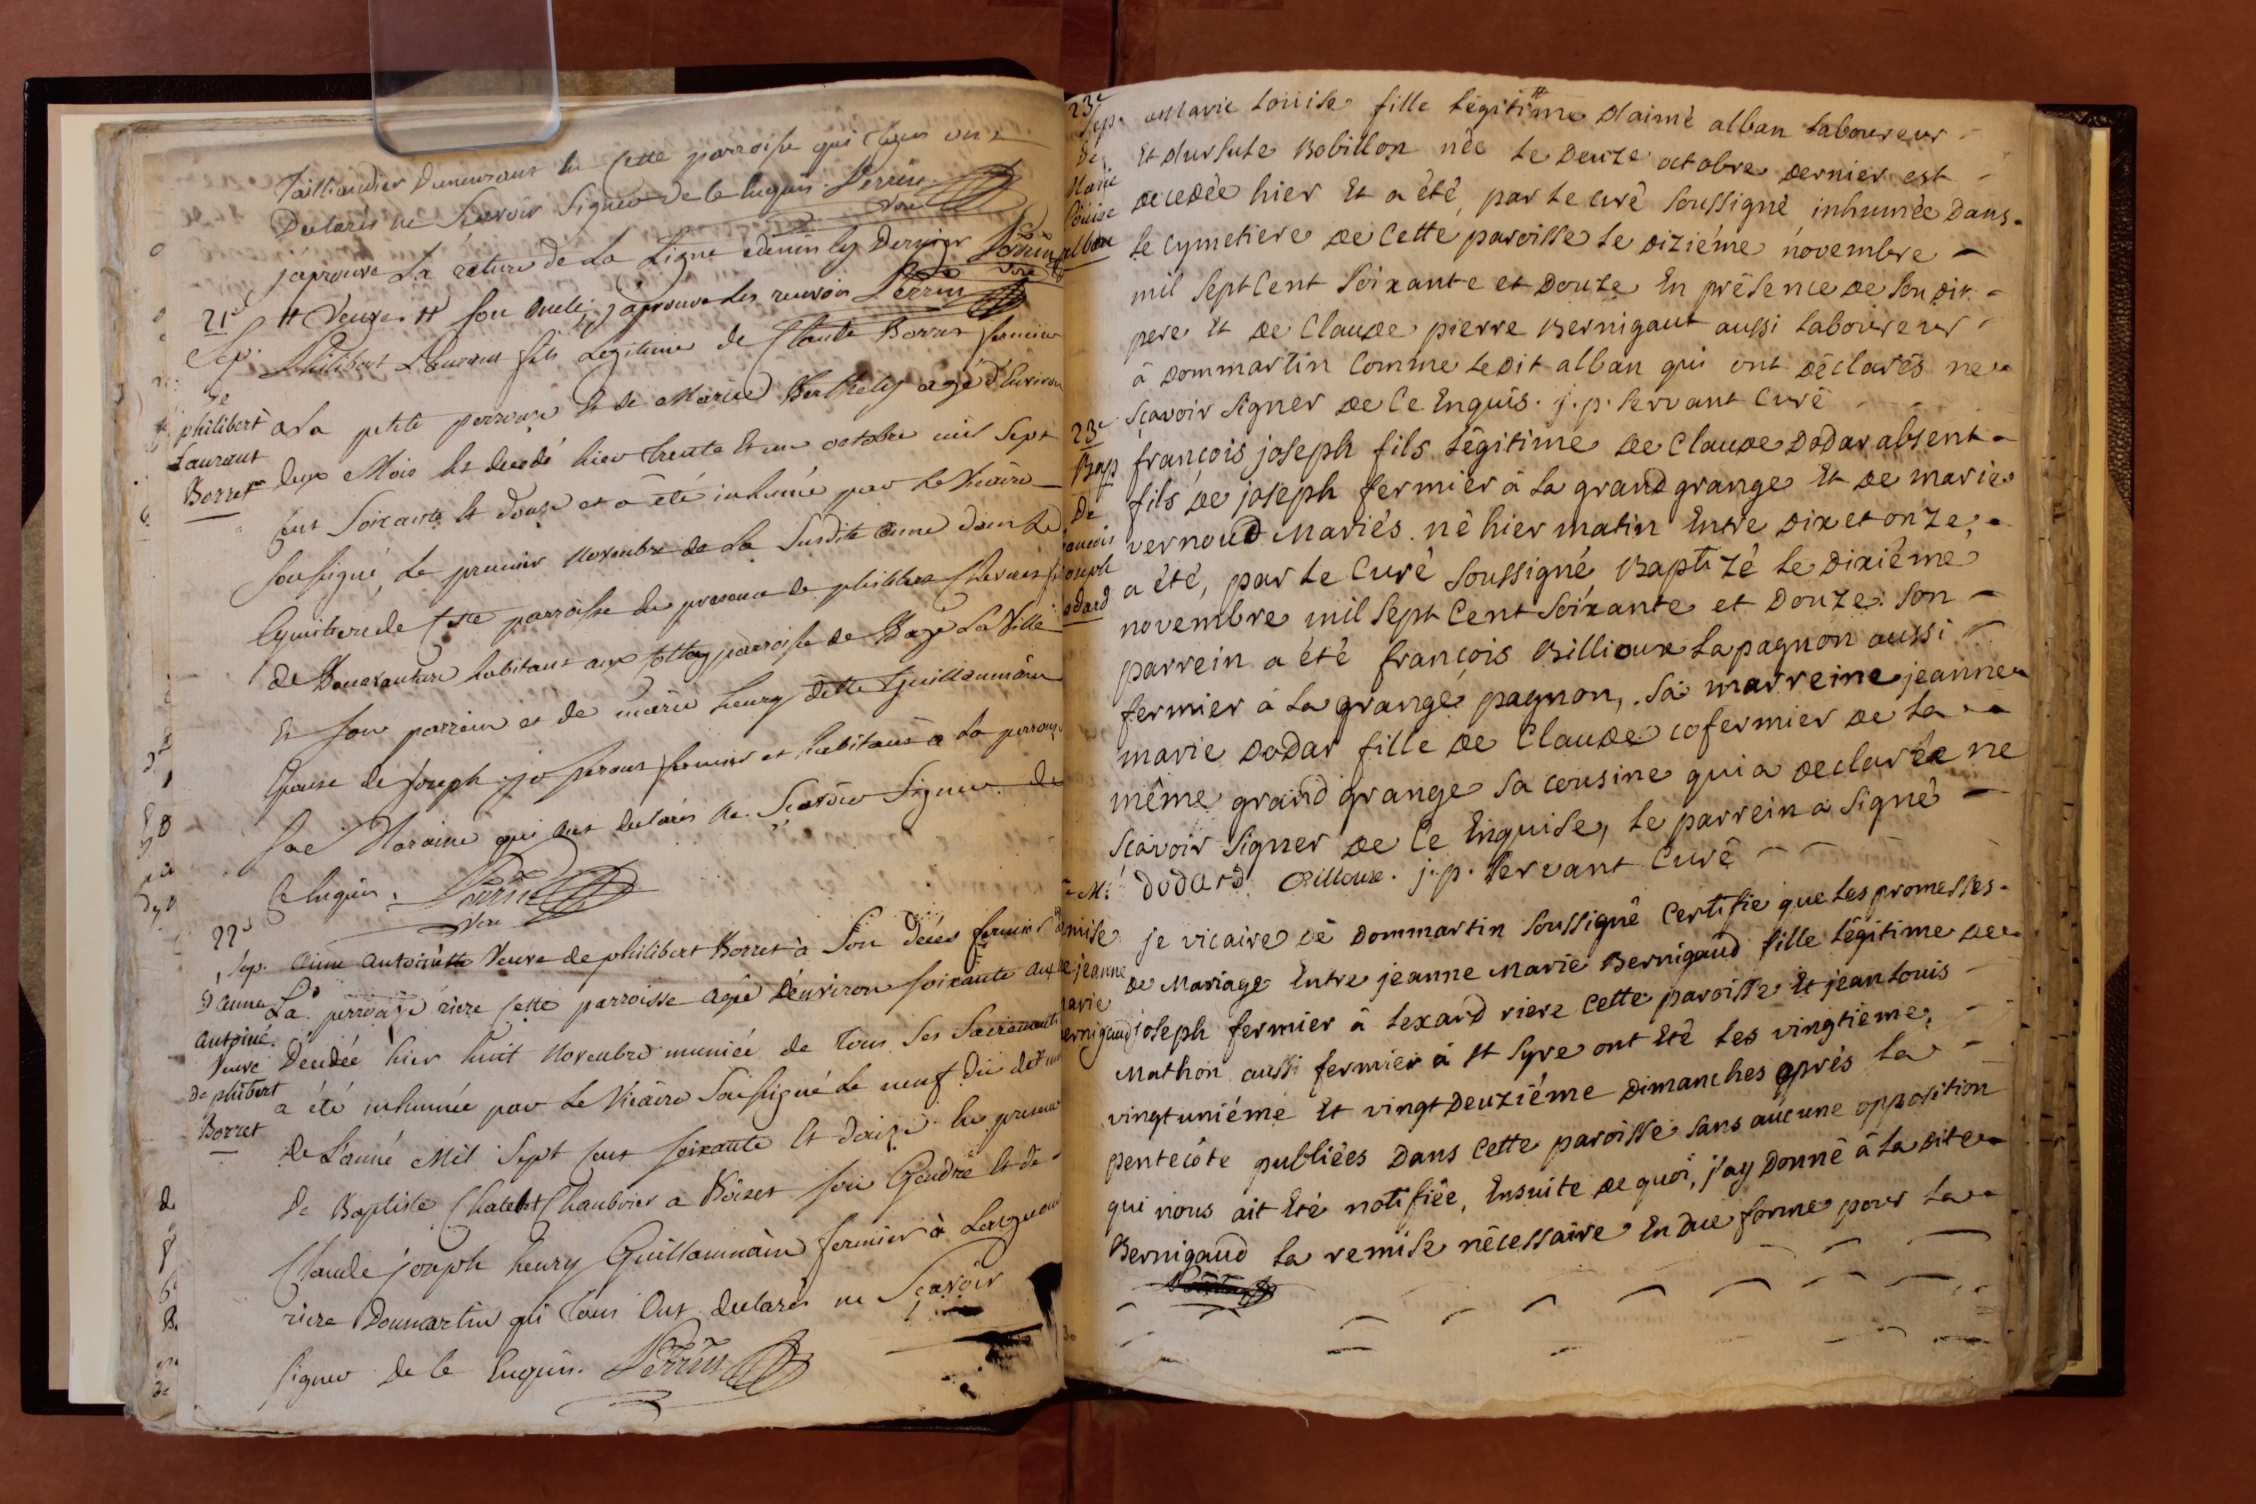 Taillandier Demeurant en Cette parroisse qui tous ont
Declarés ne Scavoir Signer de ce Enquis. Perrin
vire
j'aprouve La rature de La Ligne Perrin
21e # veuve # son oncle j'aprouve les renvois Perrin
Sep. Philibert Laurent fils Legitime de Claude Borret fermier
de
philibert a La petite perrouse et de Marie Berthely agé d'Environ
Laurant
Borret deux Mois Est decedé hier trente Et un octobre mil Sept
cent Soixante Et douze et a été inhumé par le Vicaire
soussigné, Le premier Novembre de La Susdite année dans Le
Cymitiere de Cette parroisse en presence de philibert
de Bonaventure habitant aux parroisse de Bagé La Ville
Et son parrein et de marie henry dette Guillaumain
Epouse de Joseph fermier et habitant a La perrouse
sa Maraine qui ont declarés ne Scavoir Signer de
Ce Enquis. Perrin
vire
22e
Sep. Anne Antoinette Veuve de philibert Borret à Son deces fermier
D'anne La perrouse riere Cette parroisse agée D'environ soixante ans
antoine
veuve Decedée hier huit Novembre muniée de Tous Ses Sacrements
De philbert a été inhumée par Le Vicaire Soussigné Le neuf du dit
Borret
de L'anné Mil Sept cent soixante Et douze En presence
de Baptiste Chatelet a Boisset son Gendre Et de
Claude Joseph henry Guillaumain fermier à
riere Dommartin qui tous Ont declarés ne Scavoir
signer de Ce Enquis. Perrin
23e
Sep. Marie Louise fille Légitime D'aimé alban Laboureur
De Et D'ursule Bobillon née Le Douze octobre Dernier est
Marie
Loüise Decedée hier Et a été, par Le curé Soussigné inhumée Dans
alban Le Cymetiere de Cette paroisse Le Diziéme novembre
mil Sept Cent Soixante et Douze En présence de Son Dit
pere Et de Claude pierre Bernigaut aussi Laboureur
à Dommartin Comme Le Dit alban qui ont Déclarés ne
Sçavoir Signer de Ce Enquis. j. p. Servant Curé
23e
Bap françois joseph fils Légitime de Claude Dodar absent
fils de joseph fermier à La grand grange Et de marie
De vernoud Mariés né hier matin Entre Dix et onze,
a été, par Le Curé Soussigné Baptizé Le Dixiéme
novembre mil Sept Cent Soixante et Douze. Son
parrein a été françois Billioux Lapagnon aussi
fermier à La grange pagnon, Sa marreine jeanne
marie Dodar fille de Claude cofermier de La
même grand grange Sa cousine qui a declarée ne
Scavoir Signer de Ce Enquise, Le parrein a Signé
dodard Billoux. j. p. Servant Curé
je vicaire de Dommartin Soussigné Certifie que Les promesses
de Mariage Entre jeanne Marie Bernigaud fille Légitime de
joseph fermier à Lexard riere Cette paroisse Et jean Louis
Mathon aussi fermier à St Syre ont Eté Les vingtieme,
vingt uniéme Et vingt Deuxiéme Dimanches après La
pentecôte publiées Dans Cette paroisse Sans aucune opposition
qui nous ait Eté notifiée, Ensuite de quoi, j'ay Donné à La Dite
Bernigaud La remise nécessaire En due forme pour La